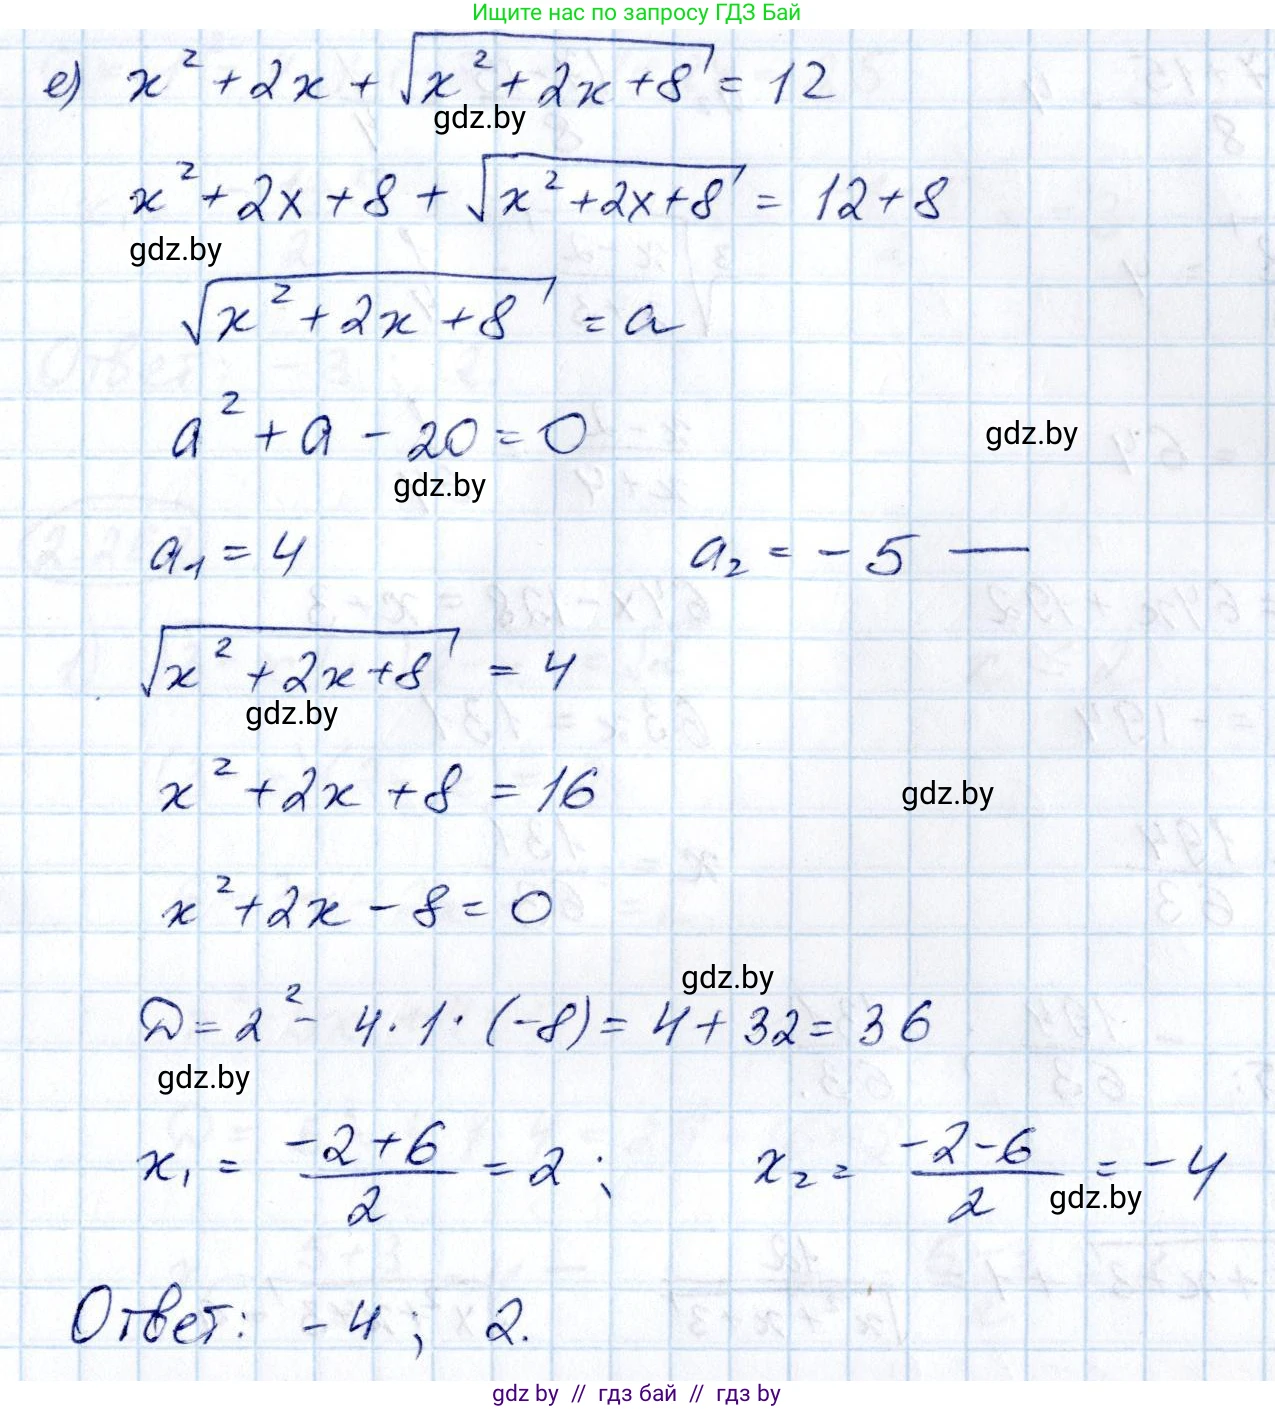 Ищите нас по запросу ГДЗ Бай
е) x² + 2x + √(x² + 2x + 8) = 12
gdz.by
x² + 2x + 8 + √(x² + 2x + 8) = 12 + 8
gdz.by
√(x² + 2x + 8) = a
a² + a - 20 = 0
gdz.by
gdz.by
a₁ = 4 a₂ = - 5 —
√(x² + 2x + 8) = 4
gdz.by
x² + 2x + 8 = 16
gdz.by
x² + 2x - 8 = 0
gdz.by
D = 2² - 4 · 1 · (-8) = 4 + 32 = 36
gdz.by
x₁ = (-2 + 6)/2 = 2 ; x₂ = (-2 - 6)/2 = -4
gdz.by
Ответ: - 4 ; 2.
gdz by // гдз бай // гдз by